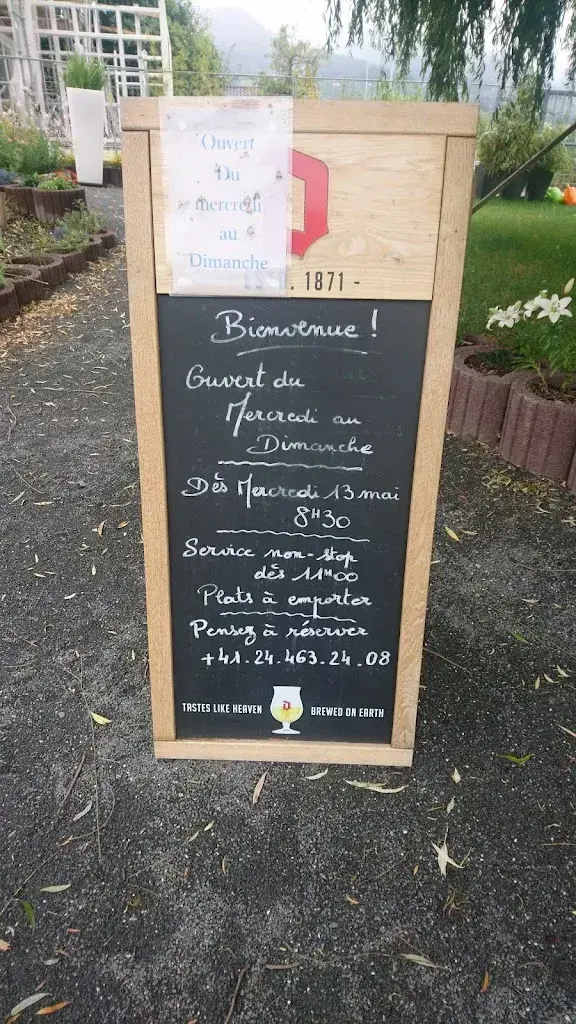 Ouvert
Du
mercredi
au
Dimanche
D
1871 -
Bienvenue !
Ouvert du
Mercredi au
Dimanche
Dès Mercredi 13 mai
8H30
Service non-stop
dès 11H00
Plats à emporter
Pensez à réserver
+41.24.463.24.08
TASTES LIKE HEAVEN D BREWED ON EARTH